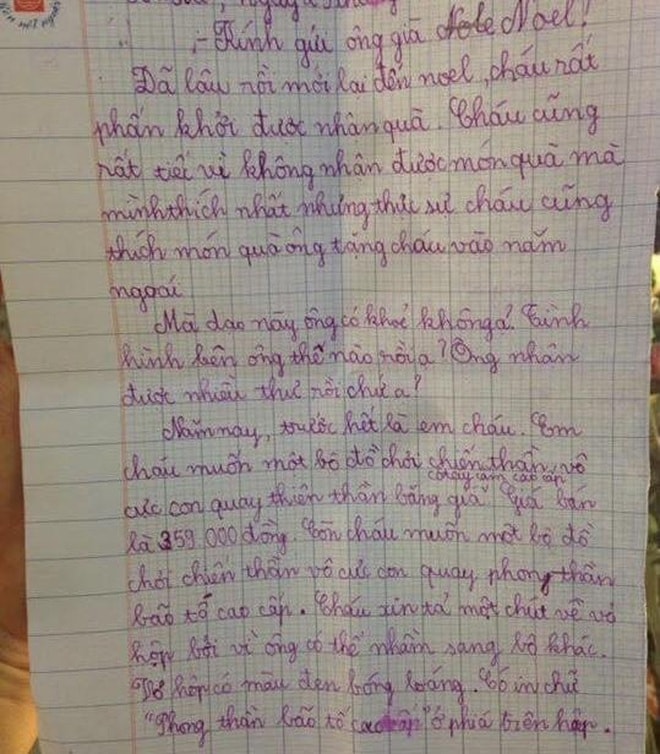 - Kính gửi ông già Noel!
Đã lâu rồi mới lại đến noel, cháu rất
phấn khởi được nhận quà. Cháu cũng
rất tiếc vì không nhận được món quà mà
mình thích nhất nhưng thực sự cháu cũng
thích món quà ông tặng cháu vào năm
ngoái
Mà dạo này ông có khoẻ không ạ? Tình
hình bên ông thế nào rồi ạ? Ông nhận
được nhiều thư rồi chứ ạ?
Năm nay, trước hết là em cháu. Em
cháu muốn một bộ đồ chơi chiến thần vô
có tay cầm cao cấp
cực con quay thiên thần băng giá. Giá bán
là 359 000 đồng. Còn cháu muốn một bộ đồ
chơi chiến thần vô cực con quay phong thần
bão tố cao cấp. Cháu xin tả một chút về vỏ
hộp bởi vì ông có thể nhầm sang bộ khác.
Vỏ hộp có màu đen bóng loáng. Có in chữ
"Phong thần bão tố cao cấp" ở phía trên hộp.